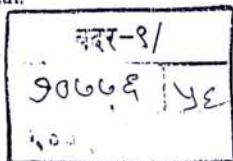 बदर-१/
१०७७६ ५६